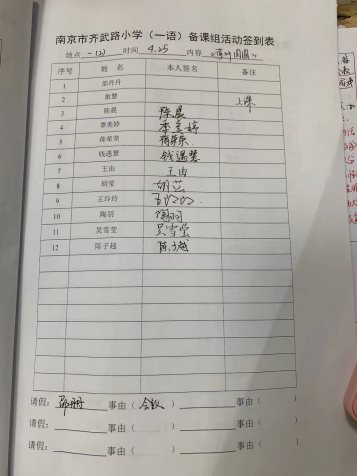 南京市齐武路小学（一语）备课组活动签到表
地点 一(2) 时间 4.25 内容 《荷叶圆圆》
序号 姓 名 本人签名 备注
1 邵丹丹
2 黄慧 上课
3 陈晨 陈晨
4 季美婷 季美婷
5 蒋荣荣 蒋荣荣
6 钱遇慧 钱遇慧
7 王由 王由
8 胡莹 胡莹
9 王玲玲 王玲玲
10 陶羽 陶羽
11 吴雪莹 吴雪莹
12 陈子越 陈子越
请假：邵丹丹 事由（会议） 事由（ ）
请假： 事由（ ） 事由（ ）
请假： 事由（ ） 事由（ ）